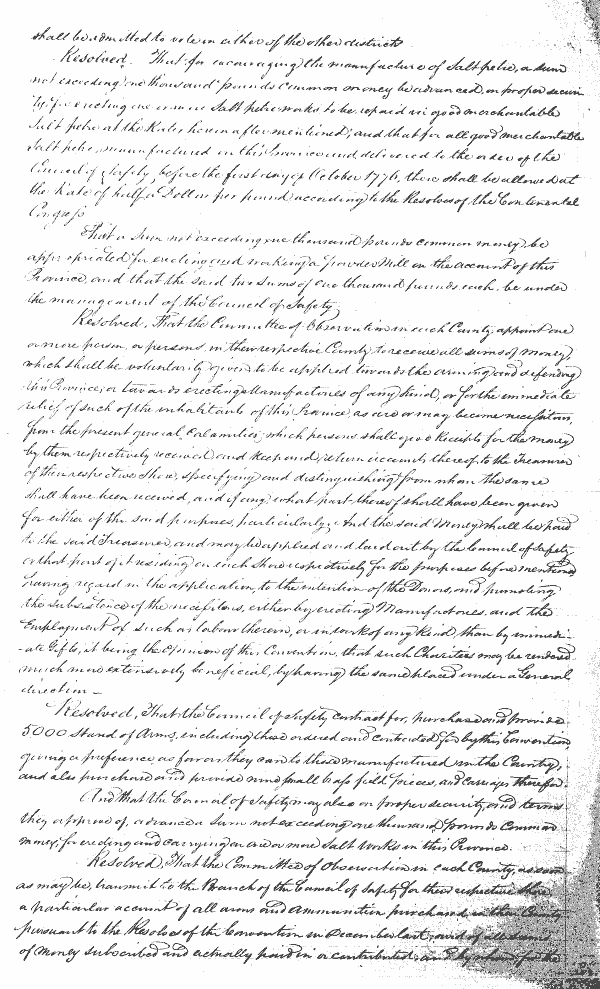 shall be admitted to vote in either of the other districts
Resolved. That for encouraging the manufacture of Salt petre, a sum
not exceeding one thousand pounds common money be advanced, on proper securi
ty, for erecting one or more Salt petre works to be repaid in good merchantable
Salt petre at the Rates herein after mentioned; and that for all good merchantable
Salt petre, manufactured in this Province and delivered to the order of the
Council of Safety, before the first day of October 1776, there shall be allowed at
the Rate of half a Dollar per pound according to the Resolves of the Continental
Congress
That a Sum not exceeding one thousand pounds common money, be
appropriated for erecting and working a Powder Mill on the account of this
Province, and that the said two sums of one thousand pounds each be under
the management of the Council of Safety
Resolved, That the Committee of Observation in each County, appoint one
or more person, or persons, in their respective County to receive all sums of money,
which shall be voluntarily given to be applied towards the arming and defending
this Province, or towards erecting Manufactories of any Kind, or for the immediate
relief of such of the inhabitants of this Province, as are or may become necessitous,
from the present general Calamities; which persons shall give Receipts for the money
by them respectively received and keep and return accounts thereof, to the Treasurer
of their respective Shore, specifying and distinguishing from whom the same
shall have been received, and if any, what part thereof shall have been given
for either of the said purposes, particularly; And the said Money shall be paid
to the said Treasurer, and may be applied and laid out by the Council of Safety
or that part of it residing on each Shore respectively for the purposes before mentioned
having regard in the application, to the intention of the Donors, and promoting
the subsistence of the necessitous, either by erecting Manufactories and the
Employment of such as labour therein, or in work of any Kind than by immedi-
ate Gifts, it being the Opinion of this Convention, that such Charities may be rendered
much more extensively beneficial, by having the same placed under a General
direction -
Resolved, That the Council of Safety contract for, purchase and provide
5000 Stand of Arms, including those ordered and contracted for by this Convention
giving a preference as far as they can to those manufactured in the Country,
and also purchase and provide nine small brass field pieces, and carriages therefor.
And that the Council of Safety may also on proper security, and terms
they approve of, advance a Sum not exceeding one thousand pounds Common
money, for erecting and carrying on one or more Salt works in this Province.
Resolved, That the Committee of Observation in each County, as soon
as may be, transmit to the Branch of the Council of Safety for their respective Shore
a particular account of all arms and ammunition purchased in their County
pursuant to the Resolves of the Convention in December last, and of all sums
of money subscribed and actually paid in or contributed, and by whom for the